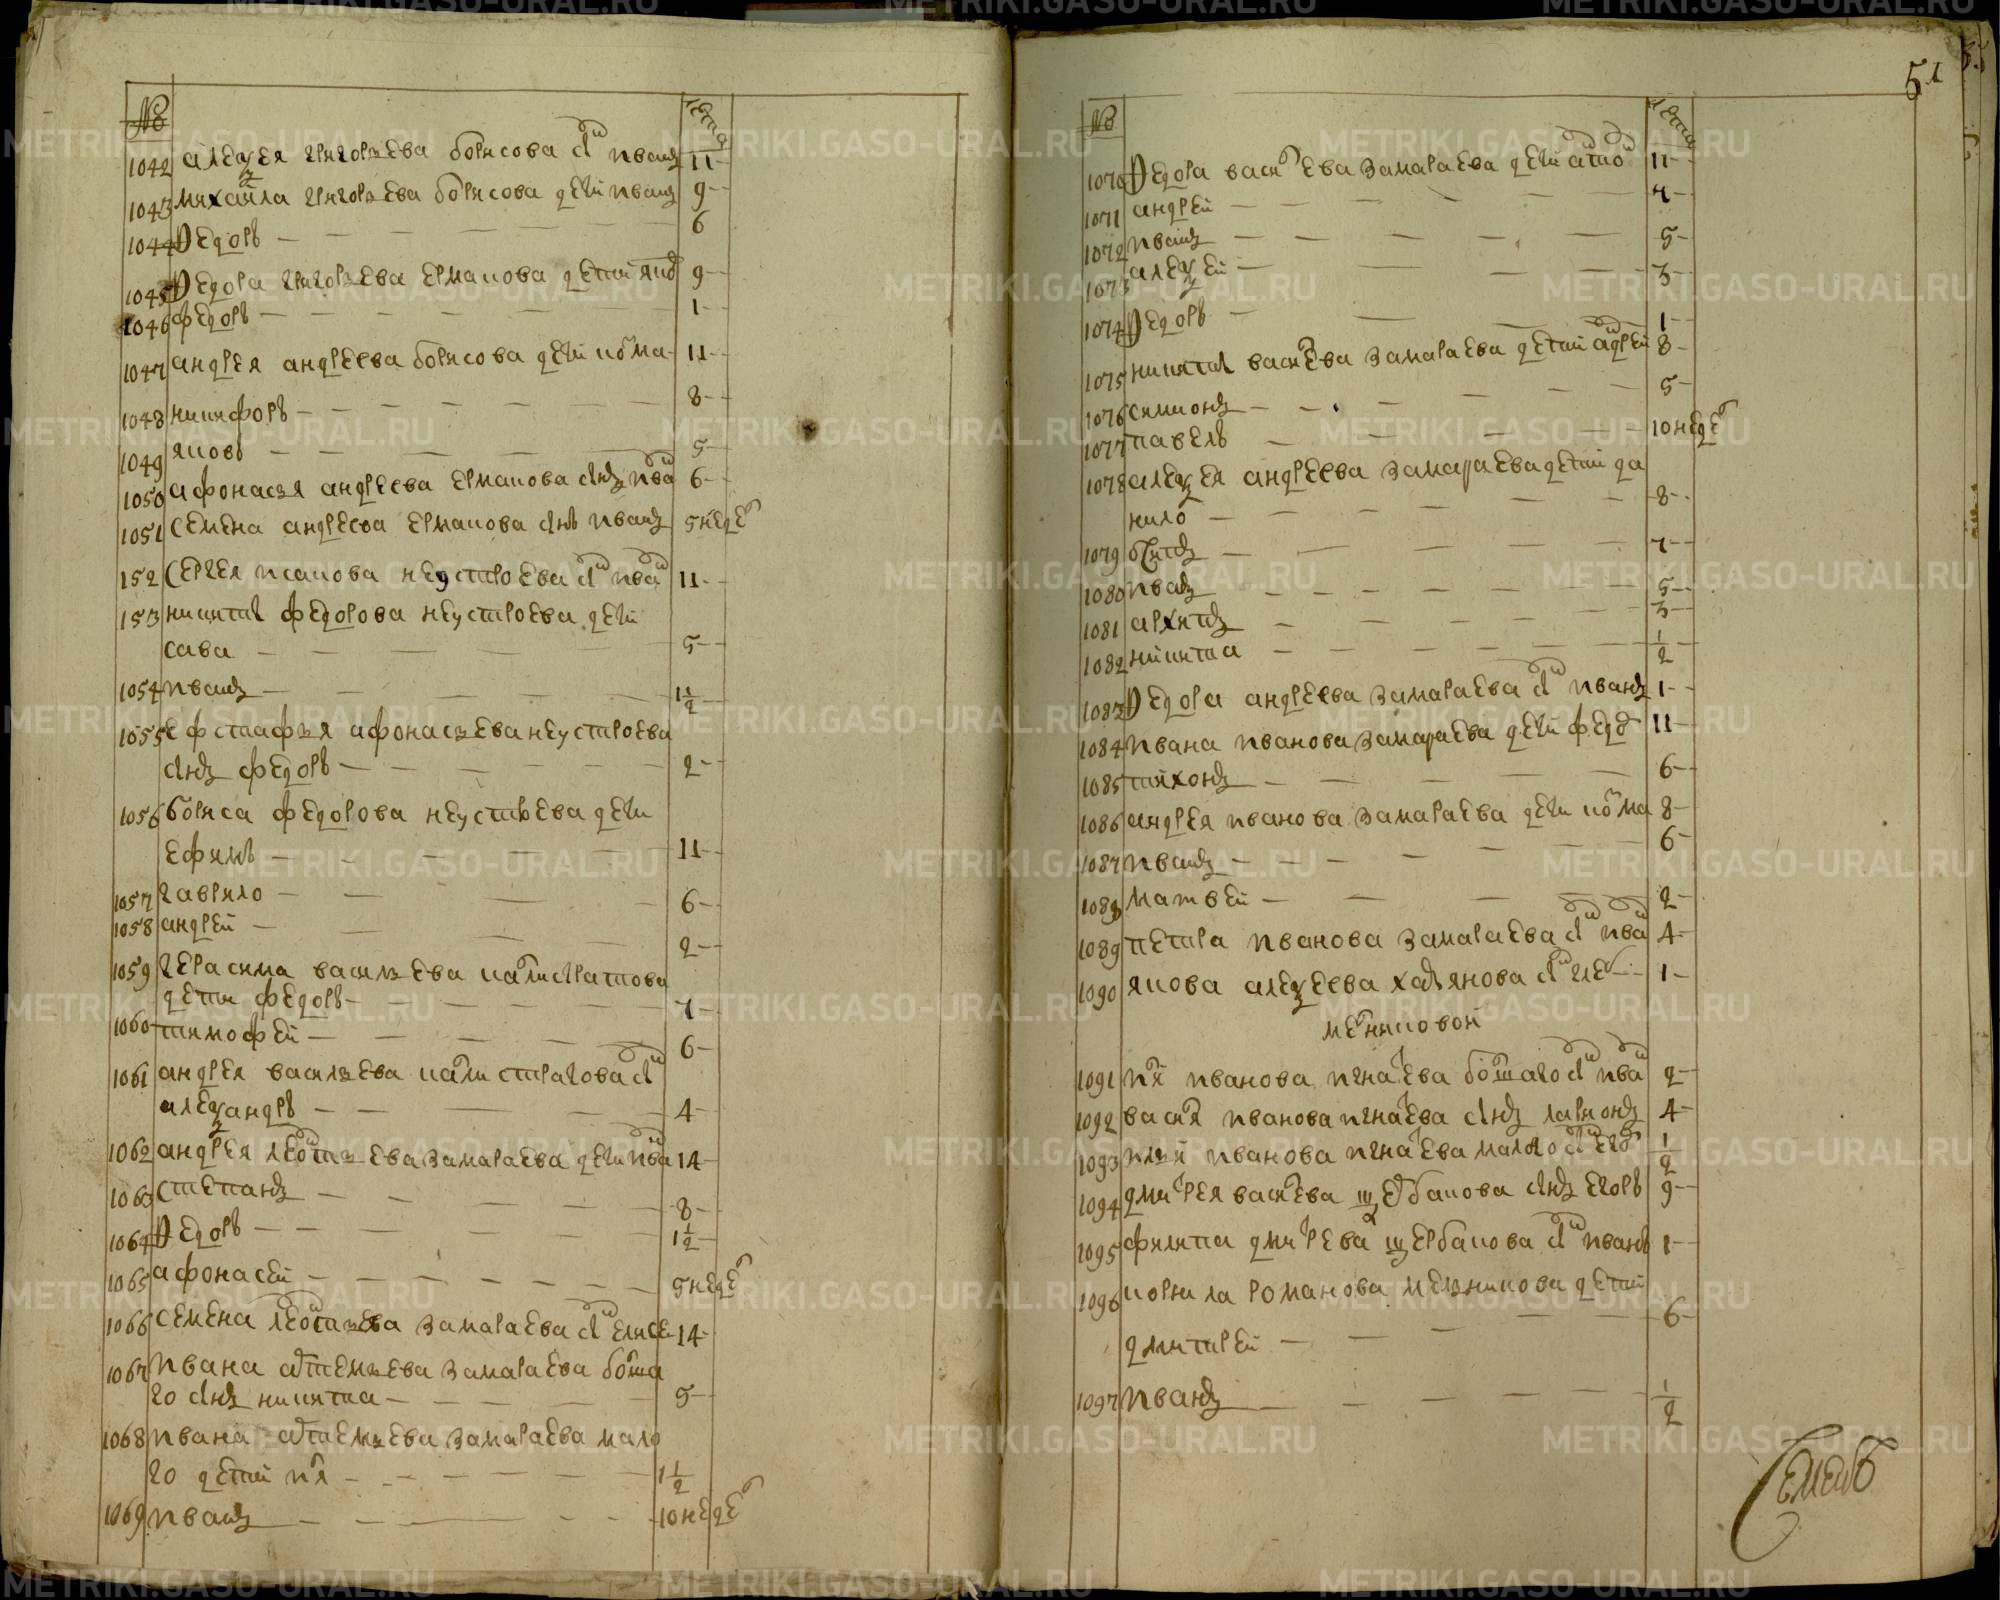 № лета
1042 алеѯея григорьева борисова сынъ иванъ 11
1043 михаила григорьева борисова дети иванъ 9
1044 Федоръ 6
1045 Федора григорьева ермакова дети яко 9
1046 федоръ 1
1047 андрея андреева борисова дети козма 11
1048 никифоръ 8
1049 яковъ 5
1050 афонасья андреева ермакова снъ ива 6
1051 семена андреева ермакова снъ иванъ 5 недел
152 Сергея исакова неустроева сынъ иван 11
153 никиты федорова неустроева дети
сава 5
1054 иванъ 1 1/2
1055 ефстафья афонасьева неустроева
снъ федоръ 2
1056 бориса федорова неустроева дети
ефимъ 11
1057 гаврило 6
1058 андрей 2
1059 герасима васильева калистратова
дети федоръ 7
1060 тимофей 6
1061 андрея васильева калистратова сынъ
алеѯандръ 4
1062 андрея левонтьева замараева дети ива 14
1063 степанъ 8
1064 Федоръ 1 1/2
1065 афонасей 5 недел
1066 семена левонтьева замараева сынъ елисе 14
1067 ивана артемьева замараева болша
го снъ никита 5
1068 ивана артемьева замараева мало
го дети илья 1 1/2
1069 иванъ 10 недел
51
№ лета
1070 Федора васильева замараева дети анто 11
1071 андрей 7
1072 иванъ 5
1073 алеѯей 3
1074 Федоръ 1
1075 никиты васильева замараева дети андрей 8
1076 симионъ 5
1077 павелъ 10 недел
1078 алеѯея андреева замараева дети да
нило 8
1079 осипъ 7
1080 иванъ 5
1081 архипъ 3
1082 никита 1/2
1083 Федора андреева замараева сынъ иванъ 1
1084 ивана иванова замараева дети федо 11
1085 тихонъ 6
1086 андрея иванова замараева дети козма 8
1087 иванъ 6
1088 матвей 2
1089 петра иванова замараева сынъ ива 4
1090 якова алеѯеева сынъ глеб 1
мелниковой
1091 илья иванова игнатьева болшаго сынъ ива 2
1092 василья иванова игнатьева снъ ларионъ 4
1093 ильи иванова игнатьева малого сынъ его 1/2
1094 дмитрея васильева щербакова снъ егоръ 9
1095 филипа дмитрева щербакова сынъ иванъ 1
1096 корнила романова мельникова дети
дмитрей 6
1097 иванъ 1/2